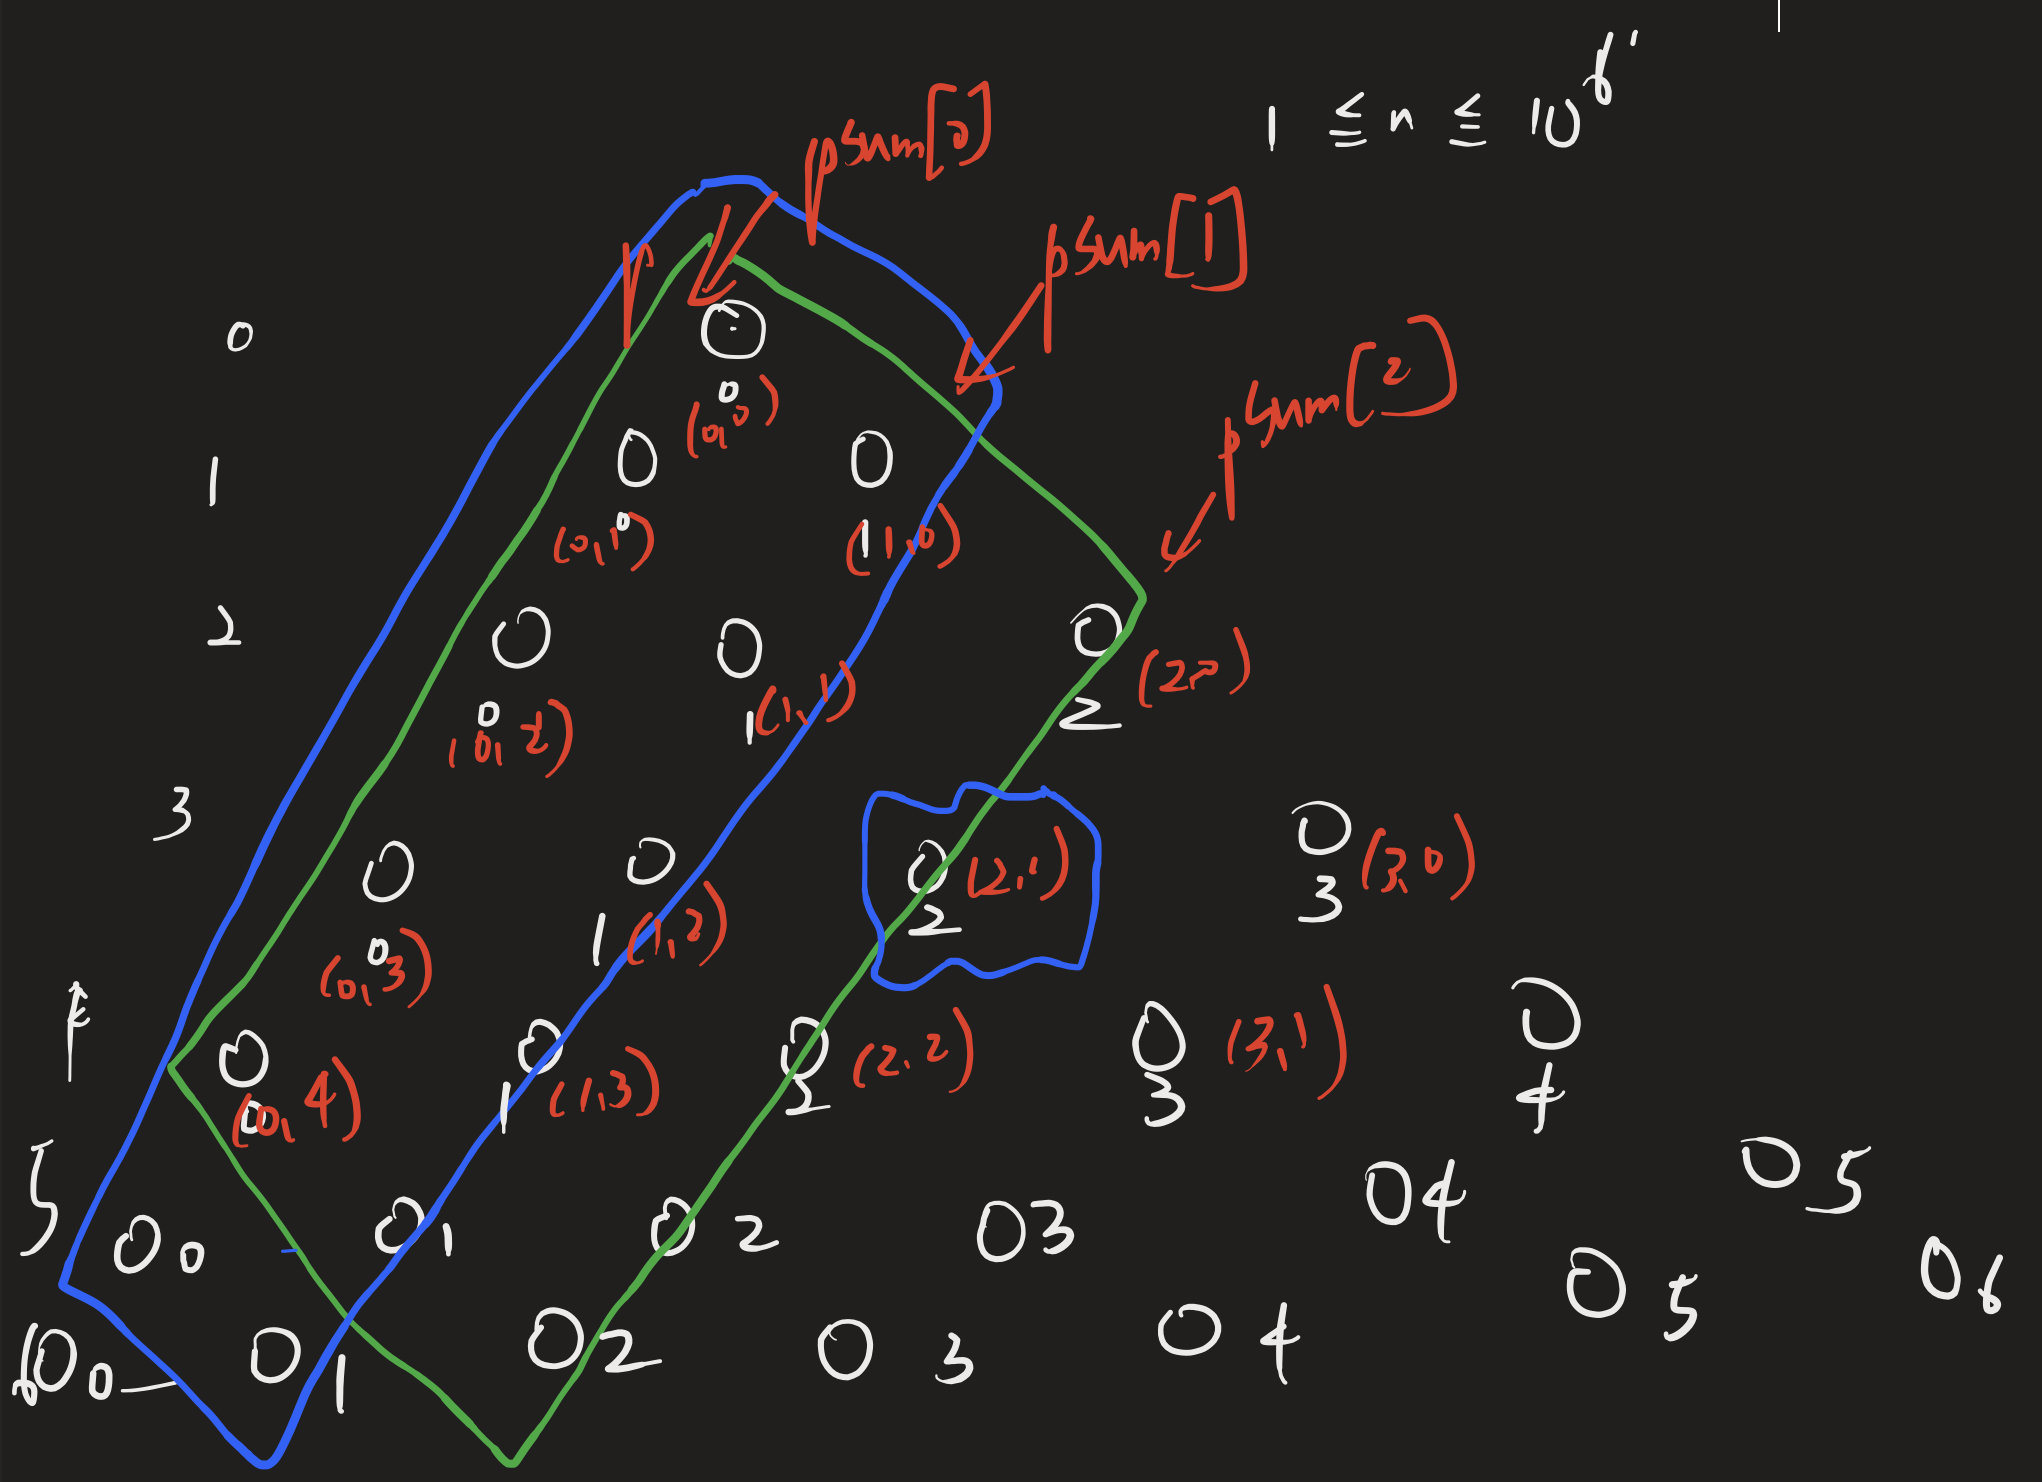 1 ≤ n ≤ 10^6
psum[0]
psum[1]
psum[2]
0 0
0 (0,0)
1 0 0
0 (0,1) 1 (1,0)
2 0 0 0
0 (0,2) 1 (1,1) 2 (2,0)
3 0 0 0 0
0 (0,3) 1 (1,2) 2 (2,1) 3 (3,0)
0 0 0 0 0
0 (0,4) 1 (1,3) 2 (2,2) 3 (3,1) 4
5 0 0 0 1 0 2 0 3 0 4 0 5
6 0 0 0 1 0 2 0 3 0 4 0 5 0 6